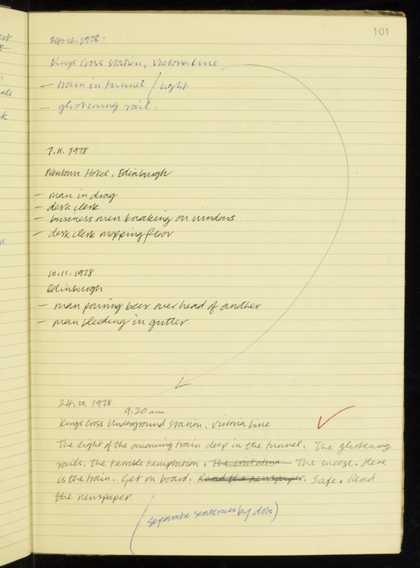 101
1978
Kings Cross Station, Victoria Line
— train in tunnel / light
— glistening rail.
7.11.1978
Hotel, Edinburgh
— man in drag
— desk clerk
— business men knocking on windows
— desk clerk mopping floor
10.11.1978
Edinburgh
— man pouring beer over head of another
— man bleeding in gutter
1978
9.20 am
Kings Cross Underground Station, Victoria Line
The light of the oncoming train deep in the tunnel. The glistening
rails. The terrible temptation. The The breeze. Here
is the train. Get on board. Read the newspaper. Safe. Read
the newspaper
(separate sentences by dots)